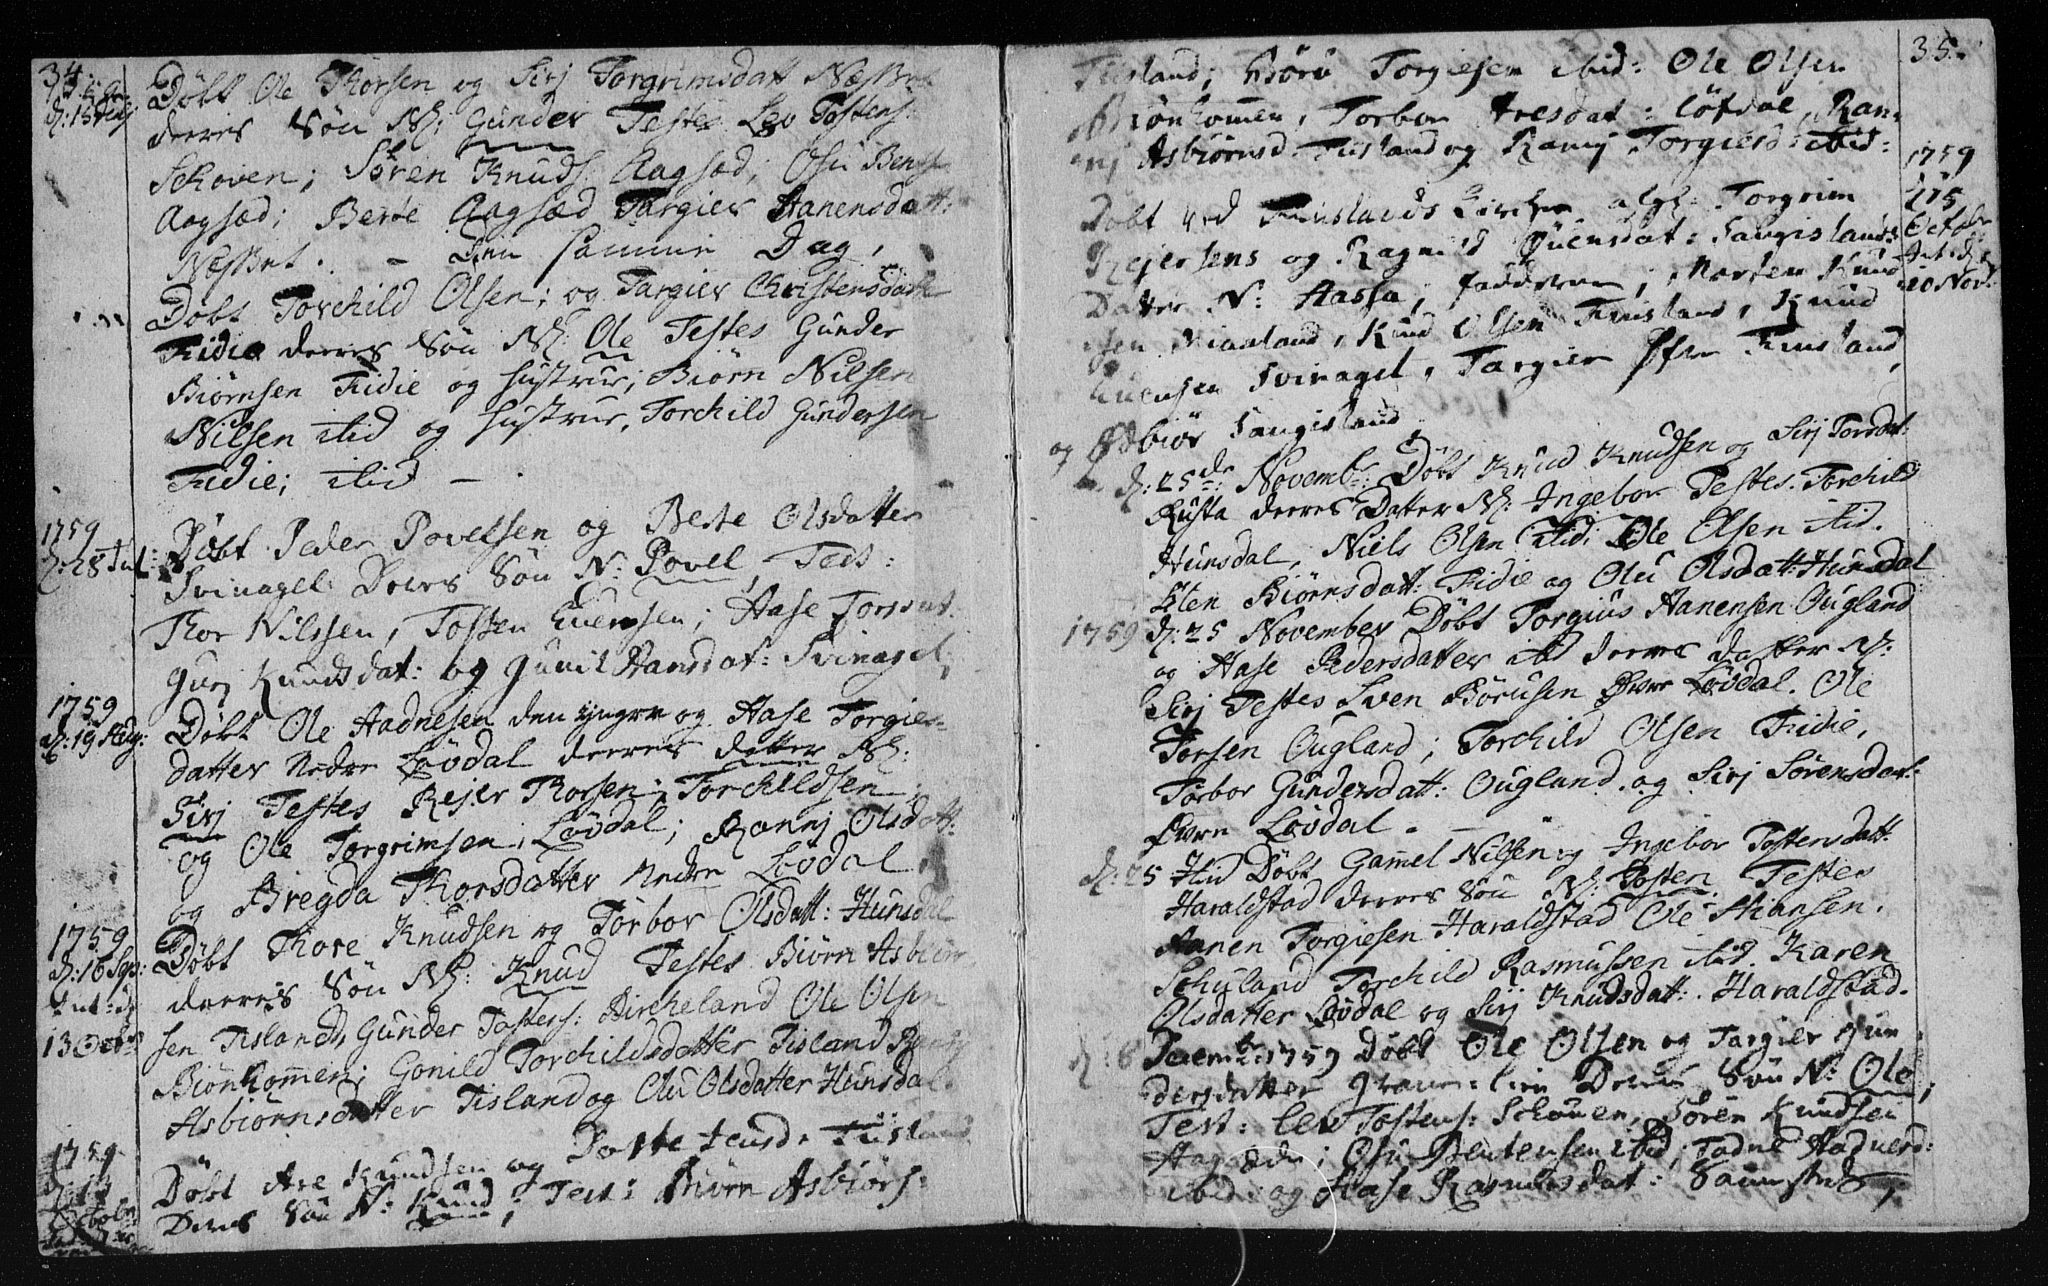 34.
d: 15 July
Døbt Ole Thorsen og Sirj Torgrimsdatt Næsset
derres Søn N: Gunder Testes Lev Tostens:
Schoven; Sören Knuds: Aagsæd; Osu Bents
Aagsæd; Berte Aagsæd Targier Hanensdatt:
Næsset. – Den samme Dag,
Døbt Torchild Olsen; og Targier Christensdatt
Fidie derres Søn N: Ole Testes Gunder
Biörnsen Fidie og Hustrue; Biörn Nilsen
Nilsen itid og Hustrue, Torchild Gundersen
Fidie; itid –
1759
d: 28 Jul:
Døbt Peder Povelsen og Berte Olsdatter
Svinaget Deres Søn N: Povel, Test:
Thor Nilssen, Tosten Evensen; Aase Torsdat
Gurj Knudsdat: og Gunil Hansdat: Svinaget,
1759
d: 19 Aug:
Døbt Ole Aadnesen den yngre og Aase Torgies-
datter Nedre Lövdal derres datter N:
Sirj Testes Rejer Thorsen; Torchildsen
og Ole Torgrimsen, Lövdal; Rannj Olsdatt:
og Bregda Thorsdatter Nedre Lövdal
1759
d: 16 Sep:
Int: d:
13 Octb:
Døbt Thore Knudsen og Torbor Olsdatt: Hunsdal
derres Søn N: Knud Testes Biörn Asbiörn
sen Tisland, Gunder Tostens: Birkeland Ole Olsen
Biönkommen; Gonild Torchildsdatter Tisland
Asbiörnsdatter Tisland og Olu Olsdatter Hunsdal.
1759
d: 14
Octobr
Døbt Are Knudsen og Dorte Jensd. Fiisland
Deres Søn N: Knud; Test: Biörn Asbiörs:
35.
Fiisland; Börö Torgiesen ibid: Ole Olsen
Biönkommen, Torbor Aresdat: Löfdal, Ran-
nj Asbiörnsd: Fiisland og Ranij Torgiersd: ibid:
1759
Octobr
Int: d:
10 Nov:
Døbt ved Finslands Kircke Torgrim
Rejersens og Ragnild Evensdat: Langislands
Datter N: Aassa, fadderne, Morten Knud
sen Miaaland, Knud Olsen Finsland, Knud
Evensen Svinaget, Targier Öfre Finsland,
og Asbiör Langisland,
d: 25de Novembr: Døbt Knud Knudsen og Sirj Torsdat:
Rusta derres Datter N: Ingebor Testes. Torchild
Hunsdal, Niels Olsen itid, Ole Elsen itid.
Sten Biörnsdatt: Fidie og Olu Olsdatt: Hunsdal
1759
d: 25 November Døbt Torgius Aanensen Ougland
og Aase Pedersdatter itid derres datter N:
Sirj Testes Sven Börusen Övre Lövdal. Ole
Torsen Ougland; Torchild Olsen Fidie,
Torbor Gundersdatt: Ougland. og Sirj Sörensdat:
Övre Lövdal. –
d: 25 Hui Døbt Gamel Nilsen og Ingebor Tostensdatt:
Haraldstad derres Søn N: Tosten Testes
Aanen Torgiesen Haraldstad Ole Stiansen.
Schuland Torchild Rasmussen itid. Karen
Olsdatter Lövdal og Sirj Knudsdatt: Haraldstad.
d: 6 Decembr: 1759 Døbt Ole Olsen og Targier Gun
dersdatter Deres Søn N: Ole,
Test: Lev Tostens: Schouen, Sören Knudsen
Aagsæd; Osu Bentensen ibid; Tadne Aadnesd:
ibid: og Aase Rasmusdat: Saumsted,